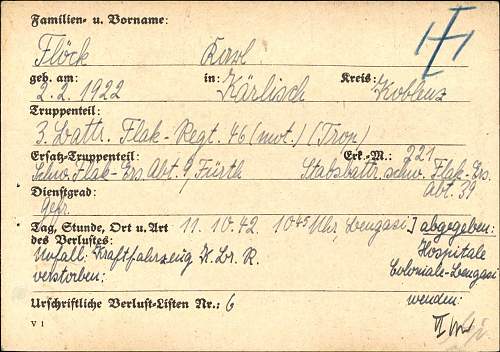 Familien- u. Vorname:
Flöck Karl
geb. am: in: Kreis:
2. 2. 1922 Kärlich Koblenz
Truppenteil:
3. Battr. Flak-Regt. 46 (mot.) (Trop)
Ersatz-Truppenteil: Erk.-M.: 221
Schw. Flak-Ers. Abt. 9, Fürth Stabsbattr. schw. Flak-Ers.
Abt. 39
Dienstgrad:
Gefr.
Tag, Stunde, Ort u. Art 11. 10. 42. 10⁴⁵ Uhr, Bengasi abgegeben:
des Verlustes: Hospitale
Unfall: Kraftfahrzeug K. Br. R. Coloniale-Bengasi
verstorben: wenden:
Urschriftliche Verlust-Listen Nr.: 6
V 1